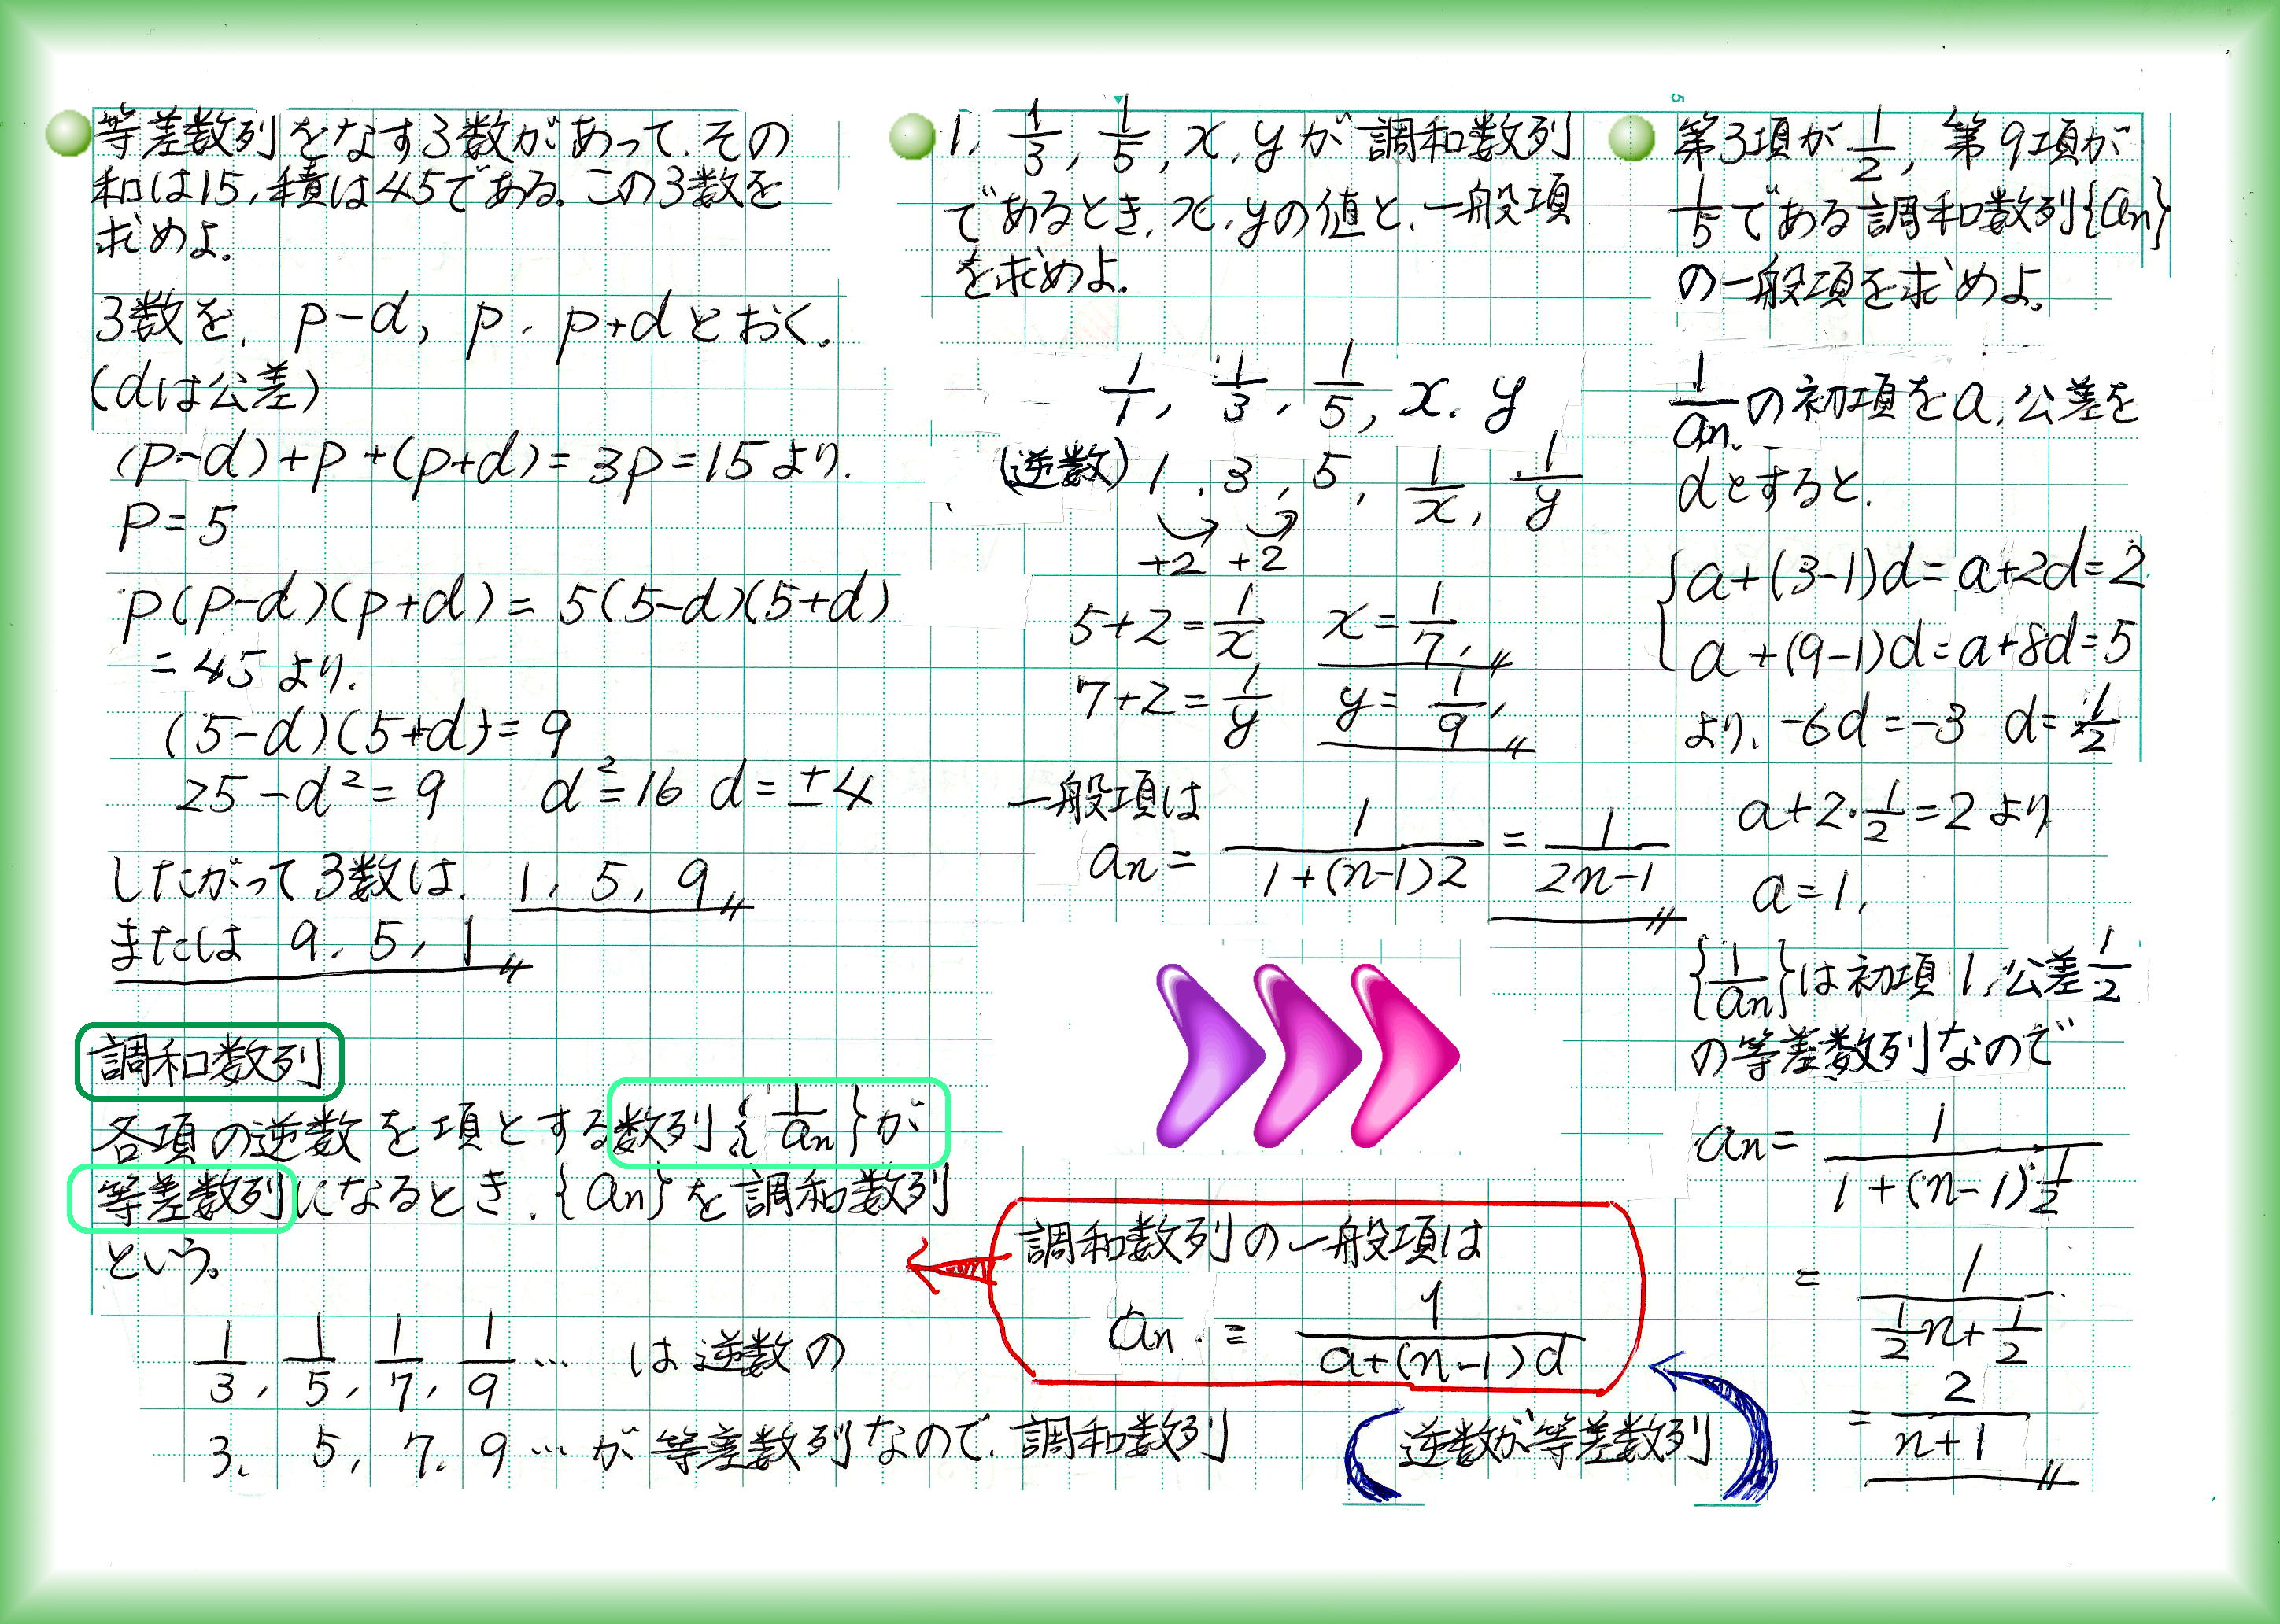 等差数列をなす3数があって、その
和は15, 積は45である。この3数を
求めよ。
3数を、p-d, p, p+d とおく。
(dは公差)
(p-d)+p+(p+d)=3p=15より、
p=5
p(p-d)(p+d)=5(5-d)(5+d)
=45より、
(5-d)(5+d)=9
25-d²=9 d²=16 d=±4
したがって3数は、1, 5, 9
または 9, 5, 1
調和数列
各項の逆数を項とする数列{1/an}が
等差数列になるとき、{an}を調和数列
という。
1/3, 1/5, 1/7, 1/9 … は逆数の
3, 5, 7, 9 … が等差数列なので、調和数列
1, 1/3, 1/5, x, y が調和数列
であるとき、x, yの値と、一般項
を求めよ。
1/1, 1/3, 1/5, x, y
(逆数) 1, 3, 5, 1/x, 1/y
+2 +2
5+2=1/x x=1/7,
7+2=1/y y=1/9,
一般項は
an=1/(1+(n-1)2)=1/(2n-1)
調和数列の一般項は
an = 1/(a+(n-1)d)
逆数が等差数列
5
第3項が1/2, 第9項が
1/5である調和数列{an}
の一般項を求めよ。
1/anの初項をa, 公差を
dとすると、
a+(3-1)d=a+2d=2
a+(9-1)d=a+8d=5
より、-6d=-3 d=1/2
a+2・1/2=2より
a=1,
{1/an}は初項1, 公差1/2
の等差数列なので
an=1/(1+(n-1)1/2)
=1/(1/2n+1/2)
=2/(n+1)